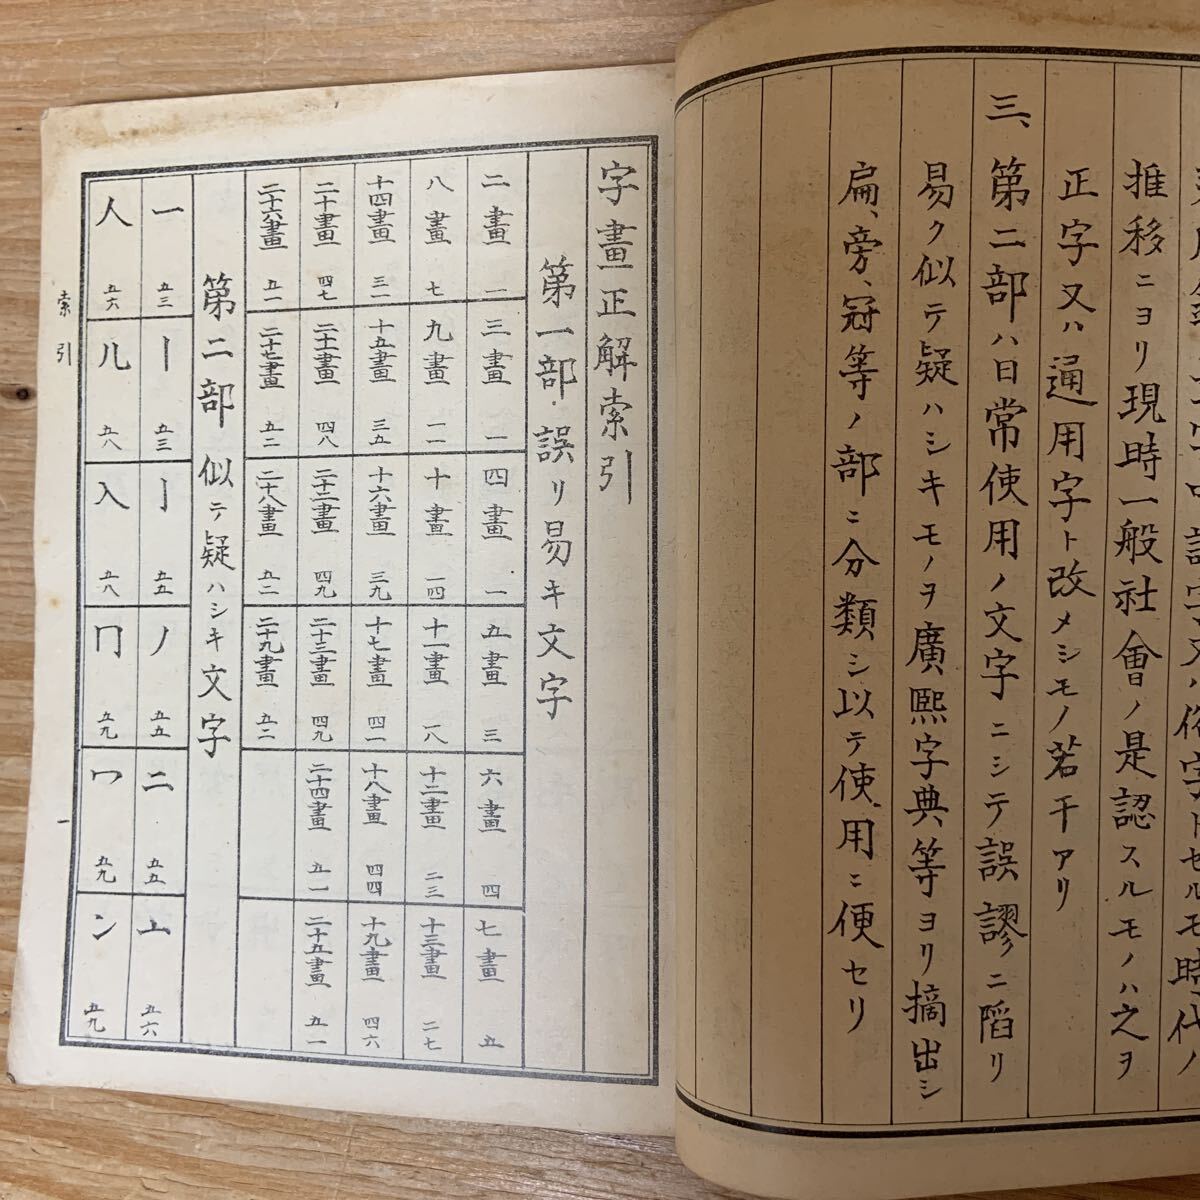 推移ニヨリ現時一般社會ノ是認スルモノハ之ヲ
正字又ハ通用字ト改メシモノ若干アリ
三、第二部ハ日常使用ノ文字ニシテ誤謬ニ陷リ
易ク似テ疑ハシキモノヲ廣熙字典等ヨリ摘出シ
扁、旁、冠等ノ部ニ分類シ以テ使用ニ便セリ
字畫正解索引
第一部 誤リ易キ文字
二畫 一 三畫 一 四畫 一 五畫 三 六畫 四 七畫 五
八畫 七 九畫 一一 十畫 一四 十一畫 一八 十二畫 二三 十三畫 二七
十四畫 三一 十五畫 三五 十六畫 三九 十七畫 四一 十八畫 四四 十九畫 四六
二十畫 四七 二十一畫 四八 二十二畫 四九 二十三畫 四九 二十四畫 五一 二十五畫 五一
二十六畫 五一 二十七畫 五二 二十八畫 五二 二十九畫 五二
第二部 似テ疑ハシキ文字
一 五三 丨 五三 亅 五五 ノ 五五 二 五五 亠 五六
人 五六 儿 五八 入 五八 冂 五九 冖 五九 冫 五九
索引 一